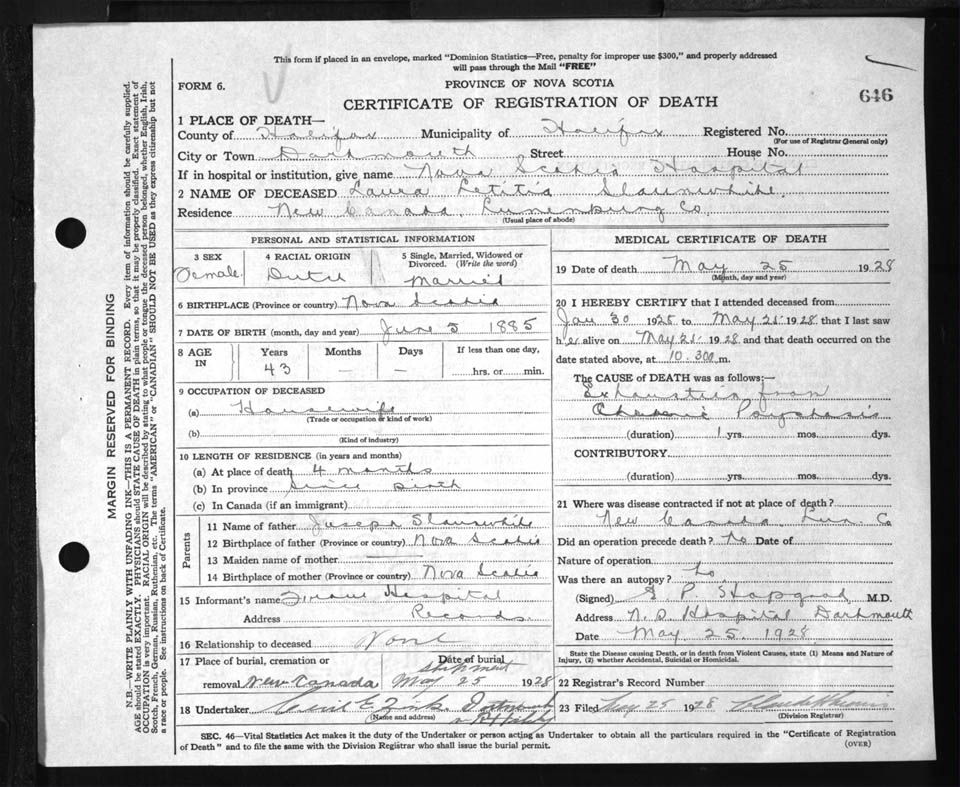 This form if placed in an envelope, marked "Dominion Statistics—Free, penalty for improper use $300," and properly addressed
will pass through the Mail "FREE"
FORM 6.
PROVINCE OF NOVA SCOTIA
CERTIFICATE OF REGISTRATION OF DEATH
646
1 PLACE OF DEATH—
County of Halifax Municipality of Halifax Registered No.
(For use of Registrar General only)
City or Town Dartmouth Street House No.
If in hospital or institution, give name Nova Scotia Hospital
2 NAME OF DECEASED Laura Letitia Slaunwhite
Residence New Canada, Lunenburg Co.
(Usual place of abode)
PERSONAL AND STATISTICAL INFORMATION
3 SEX 4 RACIAL ORIGIN 5 Single, Married, Widowed or Divorced. (Write the word)
Female Dutch Married
6 BIRTHPLACE (Province or country) Nova Scotia
7 DATE OF BIRTH (month, day and year) June 5 1885
8 AGE IN Years Months Days If less than one day,
43 — — hrs. or min.
9 OCCUPATION OF DECEASED
(a) Housewife
(Trade or occupation or kind of work)
(b)
(Kind of industry)
10 LENGTH OF RESIDENCE (in years and months)
(a) At place of death 4 months
(b) In province Since birth
(c) In Canada (if an immigrant)
Parents
11 Name of father Joseph Slaunwhite
12 Birthplace of father (Province or country) Nova Scotia
13 Maiden name of mother
14 Birthplace of mother (Province or country) Nova Scotia
15 Informant's name From Hospital
Address Records
16 Relationship to deceased None
17 Place of burial, cremation or Date of burial
shipment
removal New Canada May 25 1928
18 Undertaker Cecil E. Zink Dartmouth
(Name and address)
MEDICAL CERTIFICATE OF DEATH
19 Date of death May 25 1928
(Month, day and year)
20 I HEREBY CERTIFY that I attended deceased from
Jan 30 1925 to May 25 1928 that I last saw
her alive on May 25 1928 and that death occurred on the
date stated above, at 10.30 a m.
The CAUSE of DEATH was as follows:—
Exhaustion from
Chronic Psychosis
(duration) 1 yrs. mos. dys.
CONTRIBUTORY
(duration) yrs. mos. dys.
21 Where was disease contracted if not at place of death?
New Canada, Lun Co
Did an operation precede death? No Date of
Nature of operation
Was there an autopsy? No
(Signed) M.D.
Address N. S. Hospital Dartmouth
Date May 25. 1928
State the Disease causing Death, or in death from Violent Causes, state (1) Means and Nature of
Injury, (2) whether Accidental, Suicidal or Homicidal.
22 Registrar's Record Number
23 Filed May 25 1928
(Division Registrar)
SEC. 46—Vital Statistics Act makes it the duty of the Undertaker or person acting as Undertaker to obtain all the particulars required in the "Certificate of Registration
of Death" and to file the same with the Division Registrar who shall issue the burial permit.
(OVER)
MARGIN RESERVED FOR BINDING
N.B.—WRITE PLAINLY WITH UNFADING INK—THIS IS A PERMANENT RECORD. Every item of information should be carefully supplied.
AGE should be stated EXACTLY. PHYSICIANS should STATE CAUSE OF DEATH in plain terms, so that it may be properly classified. Exact statement of
OCCUPATION is very important. RACIAL ORIGIN will be described by stating to what people or tongue the deceased person belonged, whether English, Irish,
Scotch, French, German, Russian, Ruthenian, etc. The terms "AMERICAN" or "CANADIAN" SHOULD NOT BE USED as they express citizenship but not
a race or people. See instructions on back of Certificate.